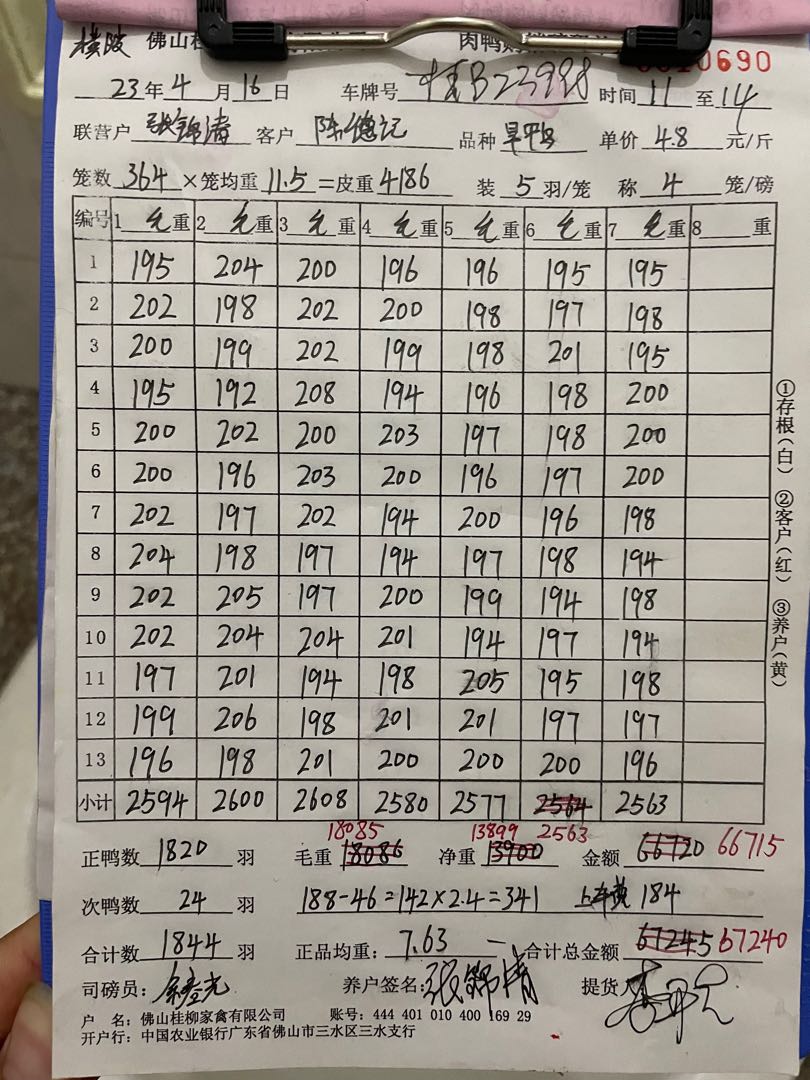 横陂 佛山桂柳
10690
23年4月16日 车牌号 桂B23988 时间11至14
联营户 张锦清 客户 陈德记 品种 单价4.8元/斤
笼数364×笼均重11.5=皮重4186 装5羽/笼 称4笼/磅
编号 1毛重 2毛重 3毛重 4毛重 5毛重 6毛重 7毛重 8重
1 195 204 200 196 196 195 195
2 202 198 202 200 198 197 198
3 200 199 202 199 198 201 195
4 195 192 208 194 196 198 200
5 200 202 200 203 197 198 200
6 200 196 203 200 196 197 200
7 202 197 202 194 200 196 198
8 204 198 197 194 197 198 194
9 202 205 197 200 199 194 198
10 202 204 204 201 194 197 194
11 197 201 194 198 205 195 198
12 199 206 198 201 201 197 197
13 196 198 201 200 200 200 196
小计 2594 2600 2608 2580 2577 2564 2563
18085 13899 2563
正鸭数1820羽 毛重18086 净重13900 金额66720 66715
次鸭数24羽 188-46=142×2.4=341 上车费184
合计数1844羽 正品均重:7.63 合计总金额67245 67240
司磅员: 养户签名:张锦清 提货人
户 名:佛山桂柳家禽有限公司 账号:444 401 010 400 169 29
开户行:中国农业银行广东省佛山市三水区三水支行
①存根(白) ②客户(红) ③养户(黄)